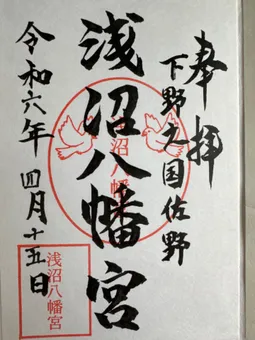 奉拝
下野之国佐野
浅沼八幡宮
浅沼八幡
令和六年 四月十五日
浅沼八幡宮